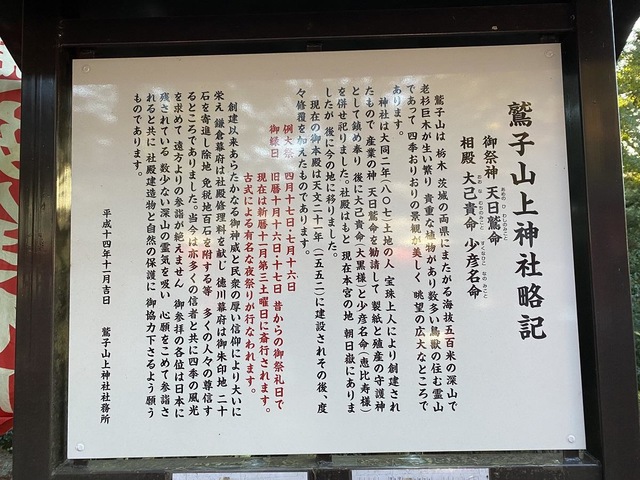 鷲子山上神社略記
御祭神 天日鷲命
あめ ひ わしのみこと
相殿 大己貴命 少彦名命
おおなむちのみこと すくなひこなのみこと
鷲子山は 栃木 茨城の両県にまたがる海抜五百米の深山で
老杉巨木が生い繁り 貴重な植物があり数多い鳥獣の住む霊山
であって 四季おりおりの景観が美しく 眺望の広大なところで
あります。
神社は大同二年(八〇七)土地の人 宝珠上人により創建され
たもので 産業の神 天日鷲命を勧請して 製紙と殖産の守護神
として鎮め奉り 後に大己貴命(大黒様)と少彦名命(恵比寿様)
を併せ祀りました。社殿はもと 現在本宮の地 朝日嶽にありま
したが 後に今の地に移りました。
現在の御本殿は天文二十一年(一五五二)に建設されその後、度
々修復を加えたものであります。
例大祭 四月十七日・七月十六日
御縁日 旧暦十月十六日・十七日 昔からの御祭礼日で
現在は新暦十一月第三土曜日に斎行されます。
古式による有名な夜祭りが行なわれます。
創建以来あらたかなる御神威と民衆の厚い信仰により大いに
栄え 鎌倉幕府は社殿修理料を献じ 徳川幕府は御朱印地 二十
石を寄進し除地 免税地百石を附する等 多くの人々の尊信す
るところでありました。当今は亦多くの信者と共に四季の風光
を求めて 遠方よりの参詣が絶えません 御参拝の各位は日本に
残されている 数少ない深山の霊気を吸い 心願をこめて参詣さ
れると共に 社殿建造物と自然の保護に 御協力下さるよう願う
ものであります。
平成十四年十一月吉日 鷲子山上神社社務所